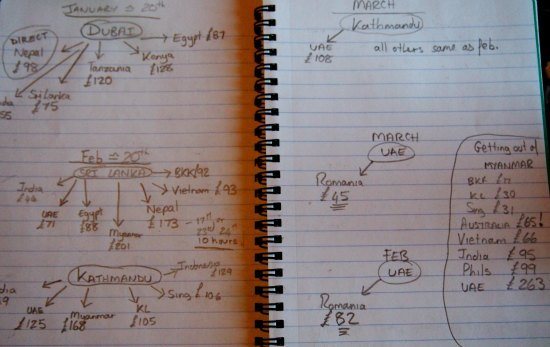 JANUARY ≏ 20th
DUBAI
DIRECT
Nepal
£98
Egypt £87
Kenya
£128
Tanzania
£120
Sri Lanka
£75
Feb ≏ 20th
SRI LANKA
BKK/92
India
Vietnam £93
UAE
£71
Egypt
£88
Myanmar
£201
Nepal
£173 - 17th
or
23rd 24th
10 hours
KATHMANDU
Indonesia
£129
Sing £106
UAE
£125
Myanmar
£168
KL
£105
MARCH
Kathmandu
UAE
£108
all others same as feb.
MARCH
UAE
Romania
£45
FEB
UAE
Romania
£82
Getting out of
MYANMAR
KL £30
Sing £31
AUSTRALIA £65!
Vietnam £66
India £95
Phils £99
UAE £263